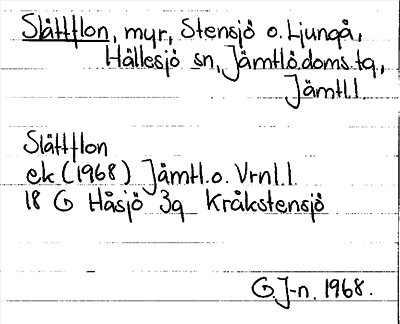 Slåttflon, myr, Stensjö o. Ljungå,
Hällesjö sn, Jämtlö.doms.tg,
Jämtl.l.
Slåttflon
ek (1968) Jämtl.o. Vrnl.l.
18 G Håsjö 3g Kråkstensjö
G.J-n. 1968.